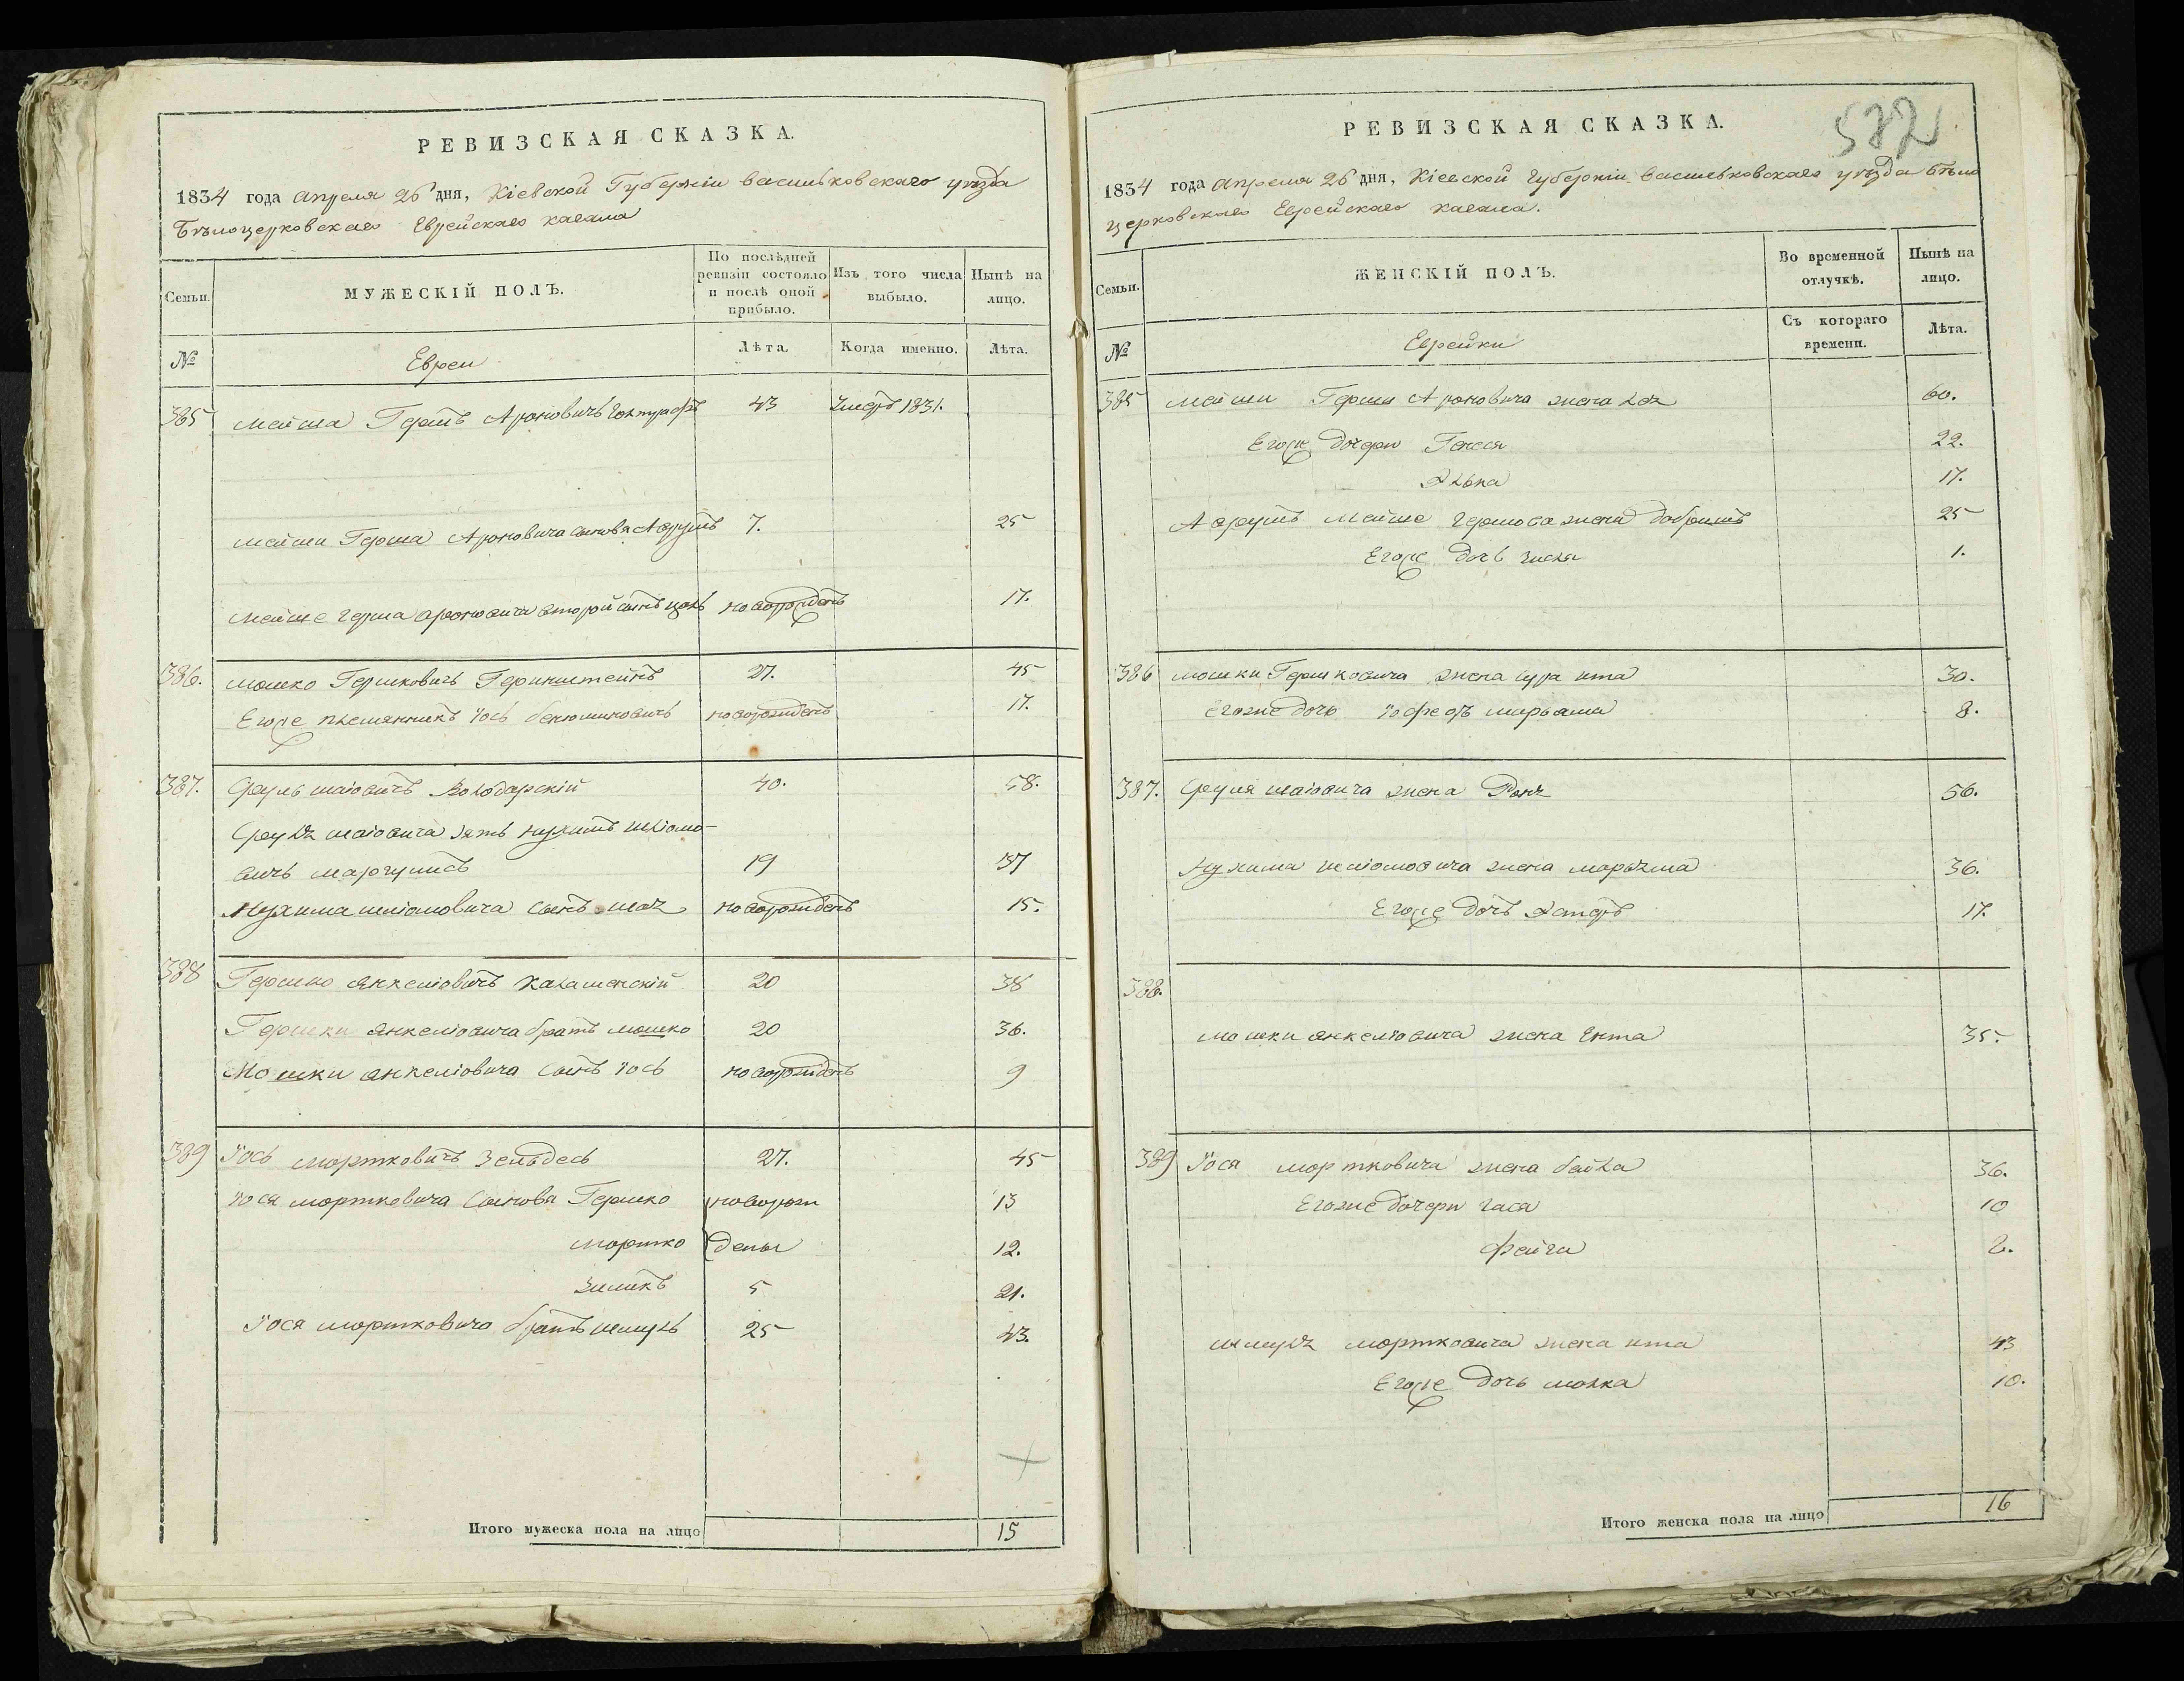 РЕВИЗСКАЯ СКАЗКА.
1834 года Апреля 26 дня, Кіевской Губерніи васильковскаго уѣзда
Бѣлоцерковскаго Еврейскаго кагала
Семьи.
МУЖЕСКІЙ ПОЛЪ.
По послѣдней ревизіи состояло и послѣ оной прибыло.
Изъ того числа выбыло.
Нынѣ на лицо.
№
Евреи
Лѣта.
Когда именно.
Лѣта.
385 мейша Гершъ Ароновичъ 43 Умеръ 1831.
мейши Герша Ароновича сыновя 7. 25
мейше герша ароновича второй сынъ новорожденъ 17.
386. мошко Гершковичъ Геринштейнъ 27. 45
Егоже племянникъ іось бенюминовичъ новорожденъ 17.
387. Сруль шаіовичъ Володарскій 40. 58.
Сруля шаіовича зять нухимъ шліомо-
вичъ маргулисъ 19 37
Нухима шліомовича сынъ новорожденъ 15.
388 Гершко янкеліовичъ Калашенскій 20 38
Гершки янкеліовича братъ мошко 20 36.
Мошки янкеліовича сынъ іось новорожденъ 9
389 Іось мортковичъ Зельдесь 27. 45
Іося мортковича сыновя Гершко новорож 13
мортко дены 12.
Зиликъ 5 21.
Іося мортковича братъ шмуль 25 43.
Итого мужеска пола на лицо 15
РЕВИЗСКАЯ СКАЗКА.
1834 года Апреля 26 дня, Кіевской Губерніи васильковскаго уѣзда Бѣло
церковскаго Еврейскаго кагала.
Семьи.
ЖЕНСКІЙ ПОЛЪ.
Во временной отлучкѣ.
Нынѣ на лицо.
№
Еврейки
Съ котораго времени.
Лѣта.
385 мейши Герши Ароновича жена 60.
Егоже дочери Генеся 22.
17.
мейше гершова жена добрышъ 25
Егоже дочь зисля 1.
386 мошки Гершковича жена сура ита 30.
егоже дочь мирьяма 8.
387. Сруля шаіовича жена 56.
Нухима шліомовича жена марьяма 36.
Егоже дочъ 17.
388.
мошки янкеліовича жена Ента 35.
389 Іося мортковича жена бейла 36.
Егоже дочери хася 10
фейга 2.
шмуля мортковича жена ита 43
Егоже дочь малка 10.
Итого женска пола на лицо 16